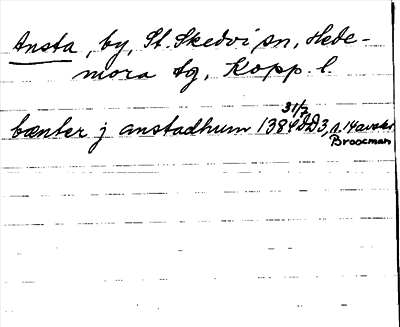 Ansta, by, St. Skedvi sn, Hede-
mora tg, Kopp. l.
bænter j anstadhum 1384 31/7 DD3, a. 14 avskr
Broocman